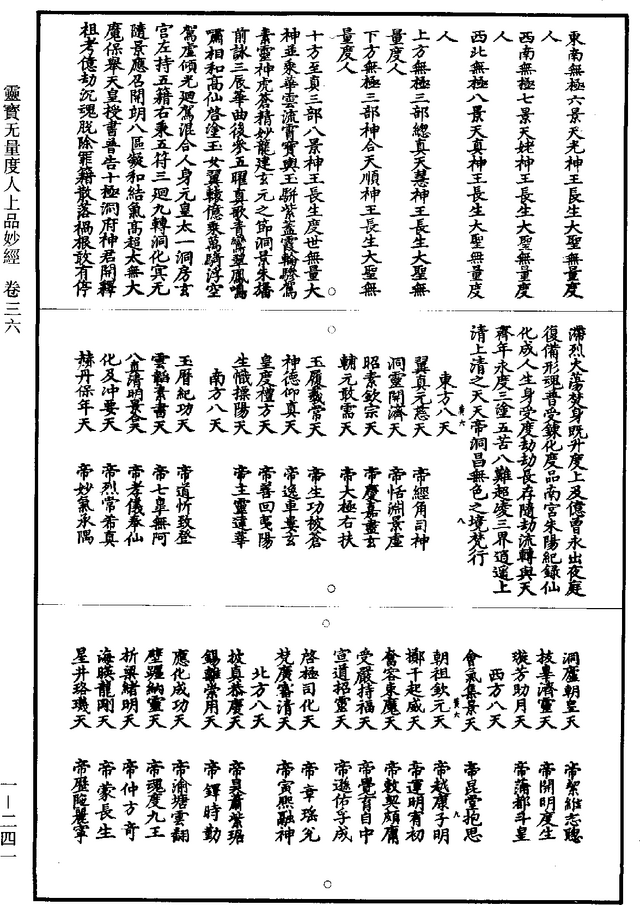 東南無極六景天光神王長生大聖無量度
人
西南無極七景天姥神王長生大聖無量度
人
西北無極八景天真神王長生大聖無量度
人
上方無極三部總真天慧神王長生大聖無
量度人
下方無極三部神合天順神王長生大聖無
量度人
十方至真三部八景神王長生度世無量大
神並乘華雲流霄寶輿玉駢紫蓋霞輪驂駕
素靈神虎蒼精妙龍建玄元之節洞景朱旛
前詠三辰華曲後參五曜真歌青鸞翠鳳鳴
嘯相和高仙啓塗玉女翼轅億乘萬騎浮空
駕虛傾光迴駕混合人身元皇太一洞房玄
宮左持五籍右秉五符三迴九轉洞化冥元
隨景應召開朗八區凝和結氣高超太無大
魔保舉天皇授書普告十極洞府神君開釋
祖考億劫沉魂脫除罪籍散落禍根敢有停
滯烈火蕩焚身既升度上及億曾永出夜庭
復備形魂普受鍊化度品南宮朱陽紀錄仙
化成人生身受度劫劫長存隨劫流轉與天
齊年永度三塗五苦八難超凌三界逍遥上
清上清之天天帝洞昌無色之境梵行
東方八天
翼真元慈天 帝經角司神
洞靈開濟天 帝恬淵景虛
昭素欽宗天 帝慶嘉盡玄
輔元敢需天 帝大極右扶
玉履載常天 帝生功核蒼
神德仰真天 帝逸車婁玄
皇度禮方天 帝善回夷陽
生懺操陽天 帝主靈蓬華
南方八天
玉曆紀功天 帝道忻致登
雲韜素書天 帝七皐無阿
八真清明景天 帝孝儀奉仙
化及沖要天 帝烈常希真
綠丹保年天 帝妙氣承隅
洞廬朝皇天 帝絜維志聽
技專濟靈天 帝開明度生
璇芳助月天 帝蒲都斗皇
西方八天
會氣集景天 帝昆堂抱思
朝祖欽元天 帝越康子明
擲千起威天 帝運明有初
奮容東魔天 帝敕契頗庸
受嚴持福天 帝覺育自中
宣道招靈天 帝遜佑孚成
啓極司化天 帝章瑤允
梵廣審清天 帝寅熙融神
北方八天
披真恭慶天 帝昊肅紫琚
錫難常用天 帝鐸時勤
應化成功天 帝渝塘雲翻
壁躔納靈天 帝魂度九王
折梁緒明天 帝仲方奇
海暎龍剛天 帝蒙長生
星井珞璣天 帝歷腕麗寧
靈寶无量度人上品妙經 卷三六
一—二四一